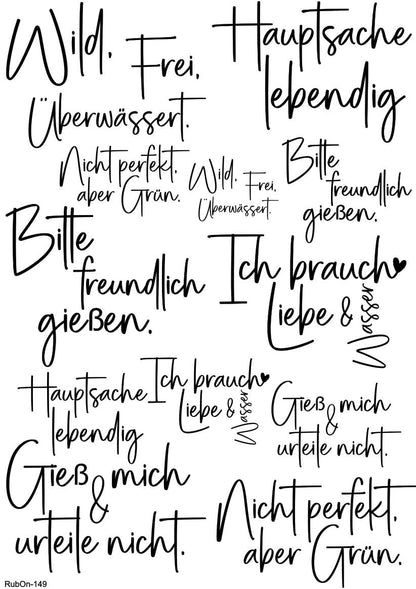 Wild,
Frei,
Überwässert.
Hauptsache
lebendig
Nicht perfekt,
aber Grün.
Wild,
Frei,
Überwässert.
Bitte
freundlich
gießen.
Bitte
freundlich
gießen.
Ich brauch
Liebe &
Wasser
Hauptsache
lebendig
Ich brauch
Liebe &
Wasser
Gieß mich
&
urteile nicht.
Gieß mich
&
urteile nicht.
Nicht perfekt,
aber Grün.
RubOn-149